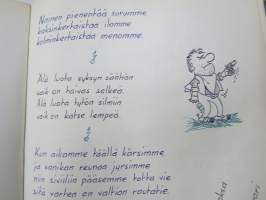 Nainen pienentää surumme
kaksinkertaistaa ilomme
kolminkertaistaa menomme.
Älä luota syksyn säähän
vaik on taivas selkeä.
Älä luota tytön silmiin
vaik on katse lempeä.
Kun aikamme täällä kärsimme
ja vanikan reunaa jyrsimme
niin siviiliin pääsemme totta vie
sitä varten on valtion rautatie.